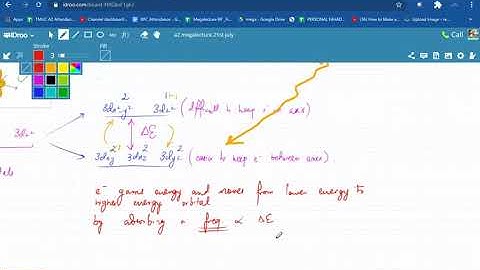 idroo.com/board-
TMUC A2 Attendan...
Channel dashboard -
BPC Attendance -
Megalecture RF -
mega - Google Drive
PERSONAL
How to Make wo
Upload Image - re
IDroo
a2 megalecture 21st july
Call
Stroke
Fill
3
2
3dx²-y² 3dz² (difficult to keep e⁻ on axis)
3dz²
ΔE
3dxy 3dxz 3dyz (easier to keep e⁻ between axes)
e⁻ gains energy and moves from lower energy to
higher energy orbital
by absorbing a freq ∝ ΔE